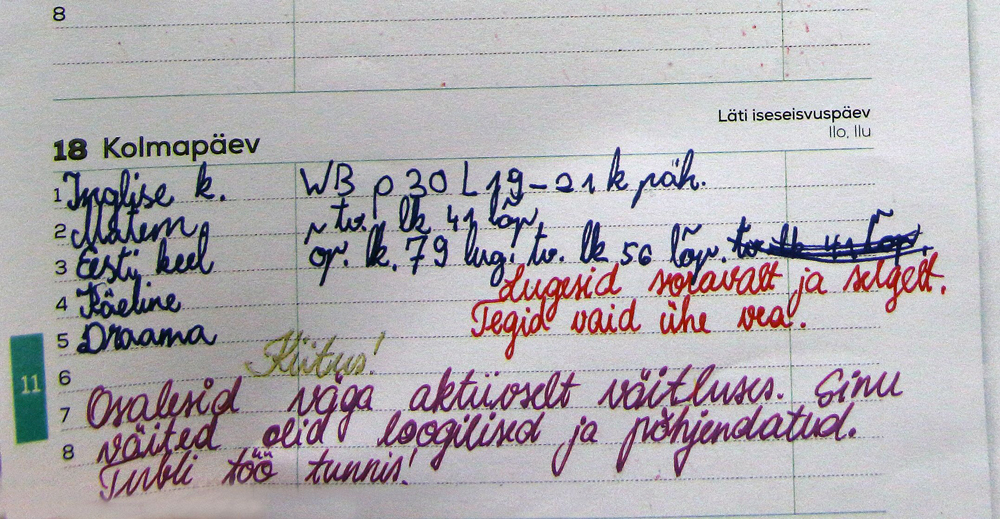 8
Läti iseseisvuspäev
18 Kolmapäev
Ilo, Ilu
1 Inglise k. WB p 30 L 19-21 k päh.
2 Matem tv. lk 41 lõp.
3 Eesti keel õp. lk. 79 lug. tv. lk 56 lõp.
4 Käeline
Lugesid soravalt ja selgelt.
5 Draama
Tegid vaid ühe vea.
Kiitus!
6
11
7 Osalesid väga aktiivselt väitluses. Sinu
8 väited olid loogilised ja põhjendatud.
Tubli töö tunnis!